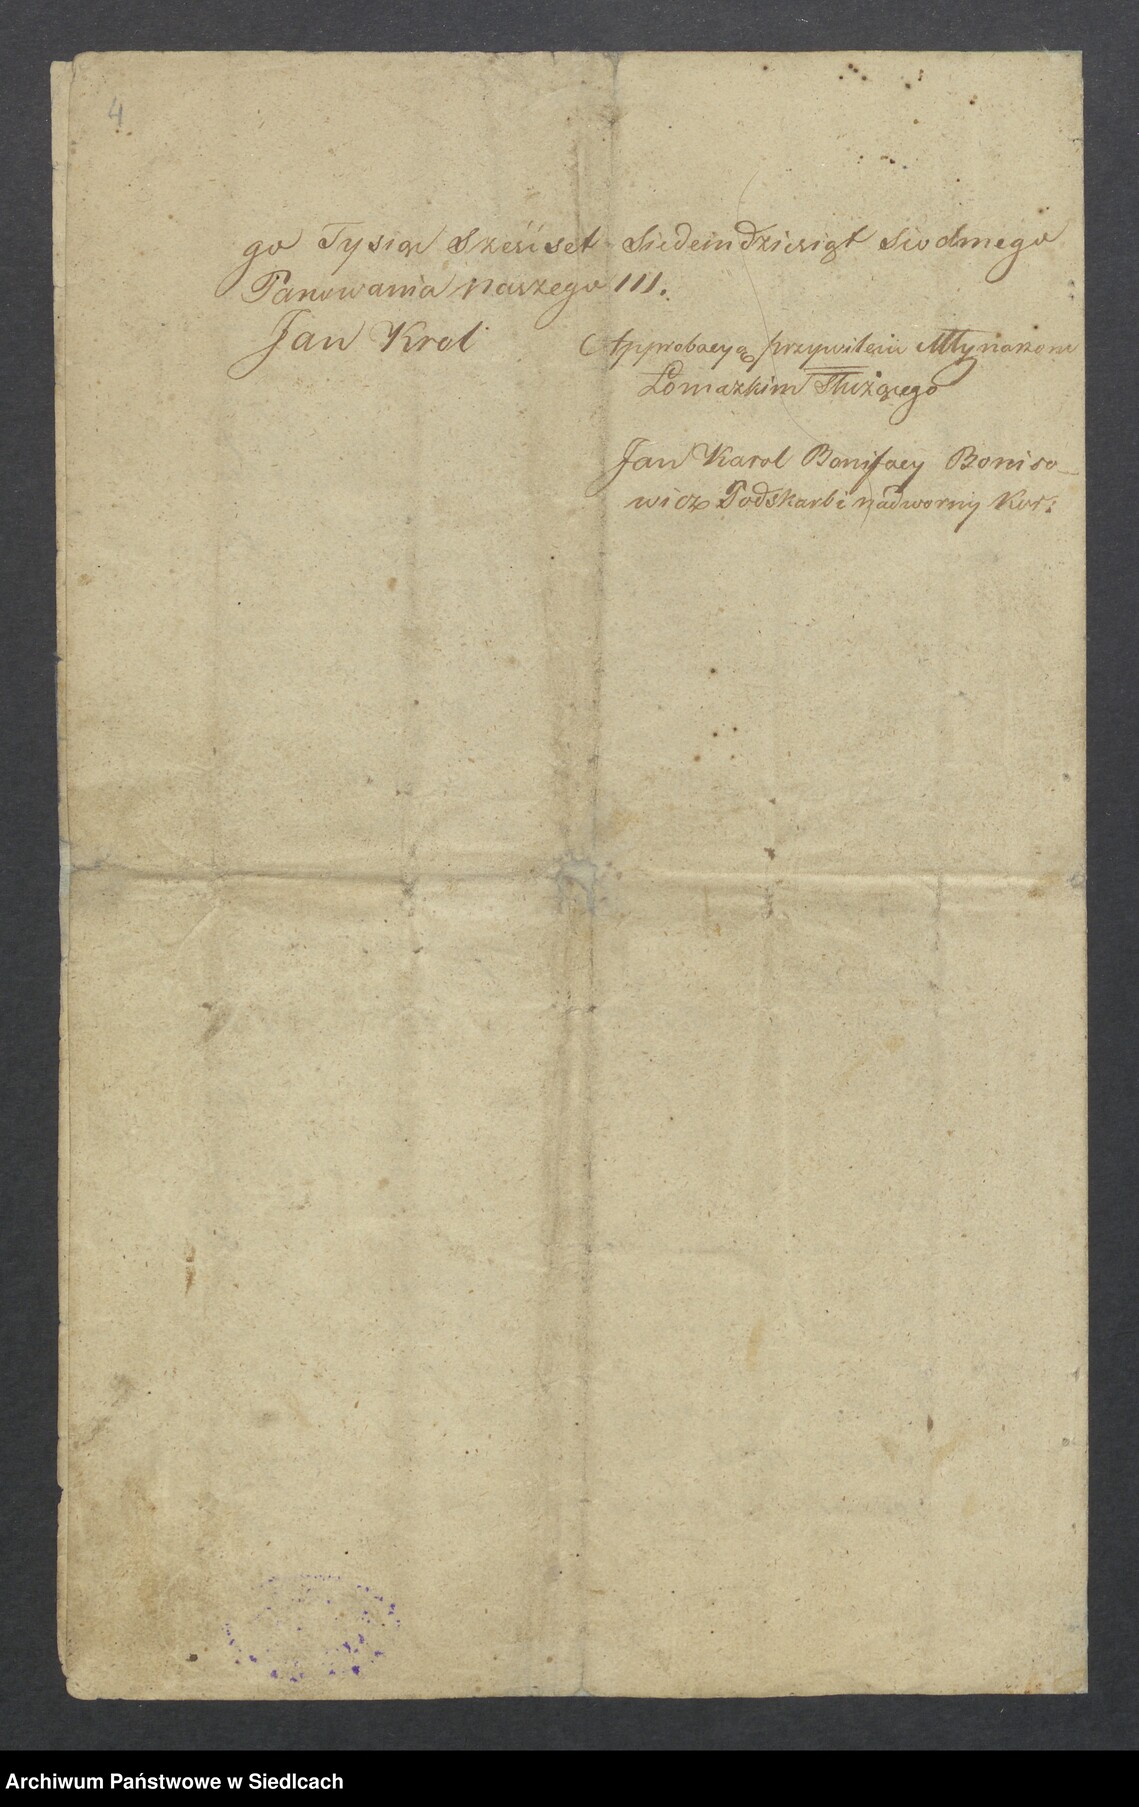 4
go Tysiąc Sześćset Siedemdziesiąt Siodmego
Panowania naszego III.
Jan Krol
Approbacya przywileiu Młynarzom
Łomazkim Służącego
Jan Karol Bonifacy Boniso_
wicz Podskarbi nadworny Kor:
Archiwum Państwowe w Siedlcach